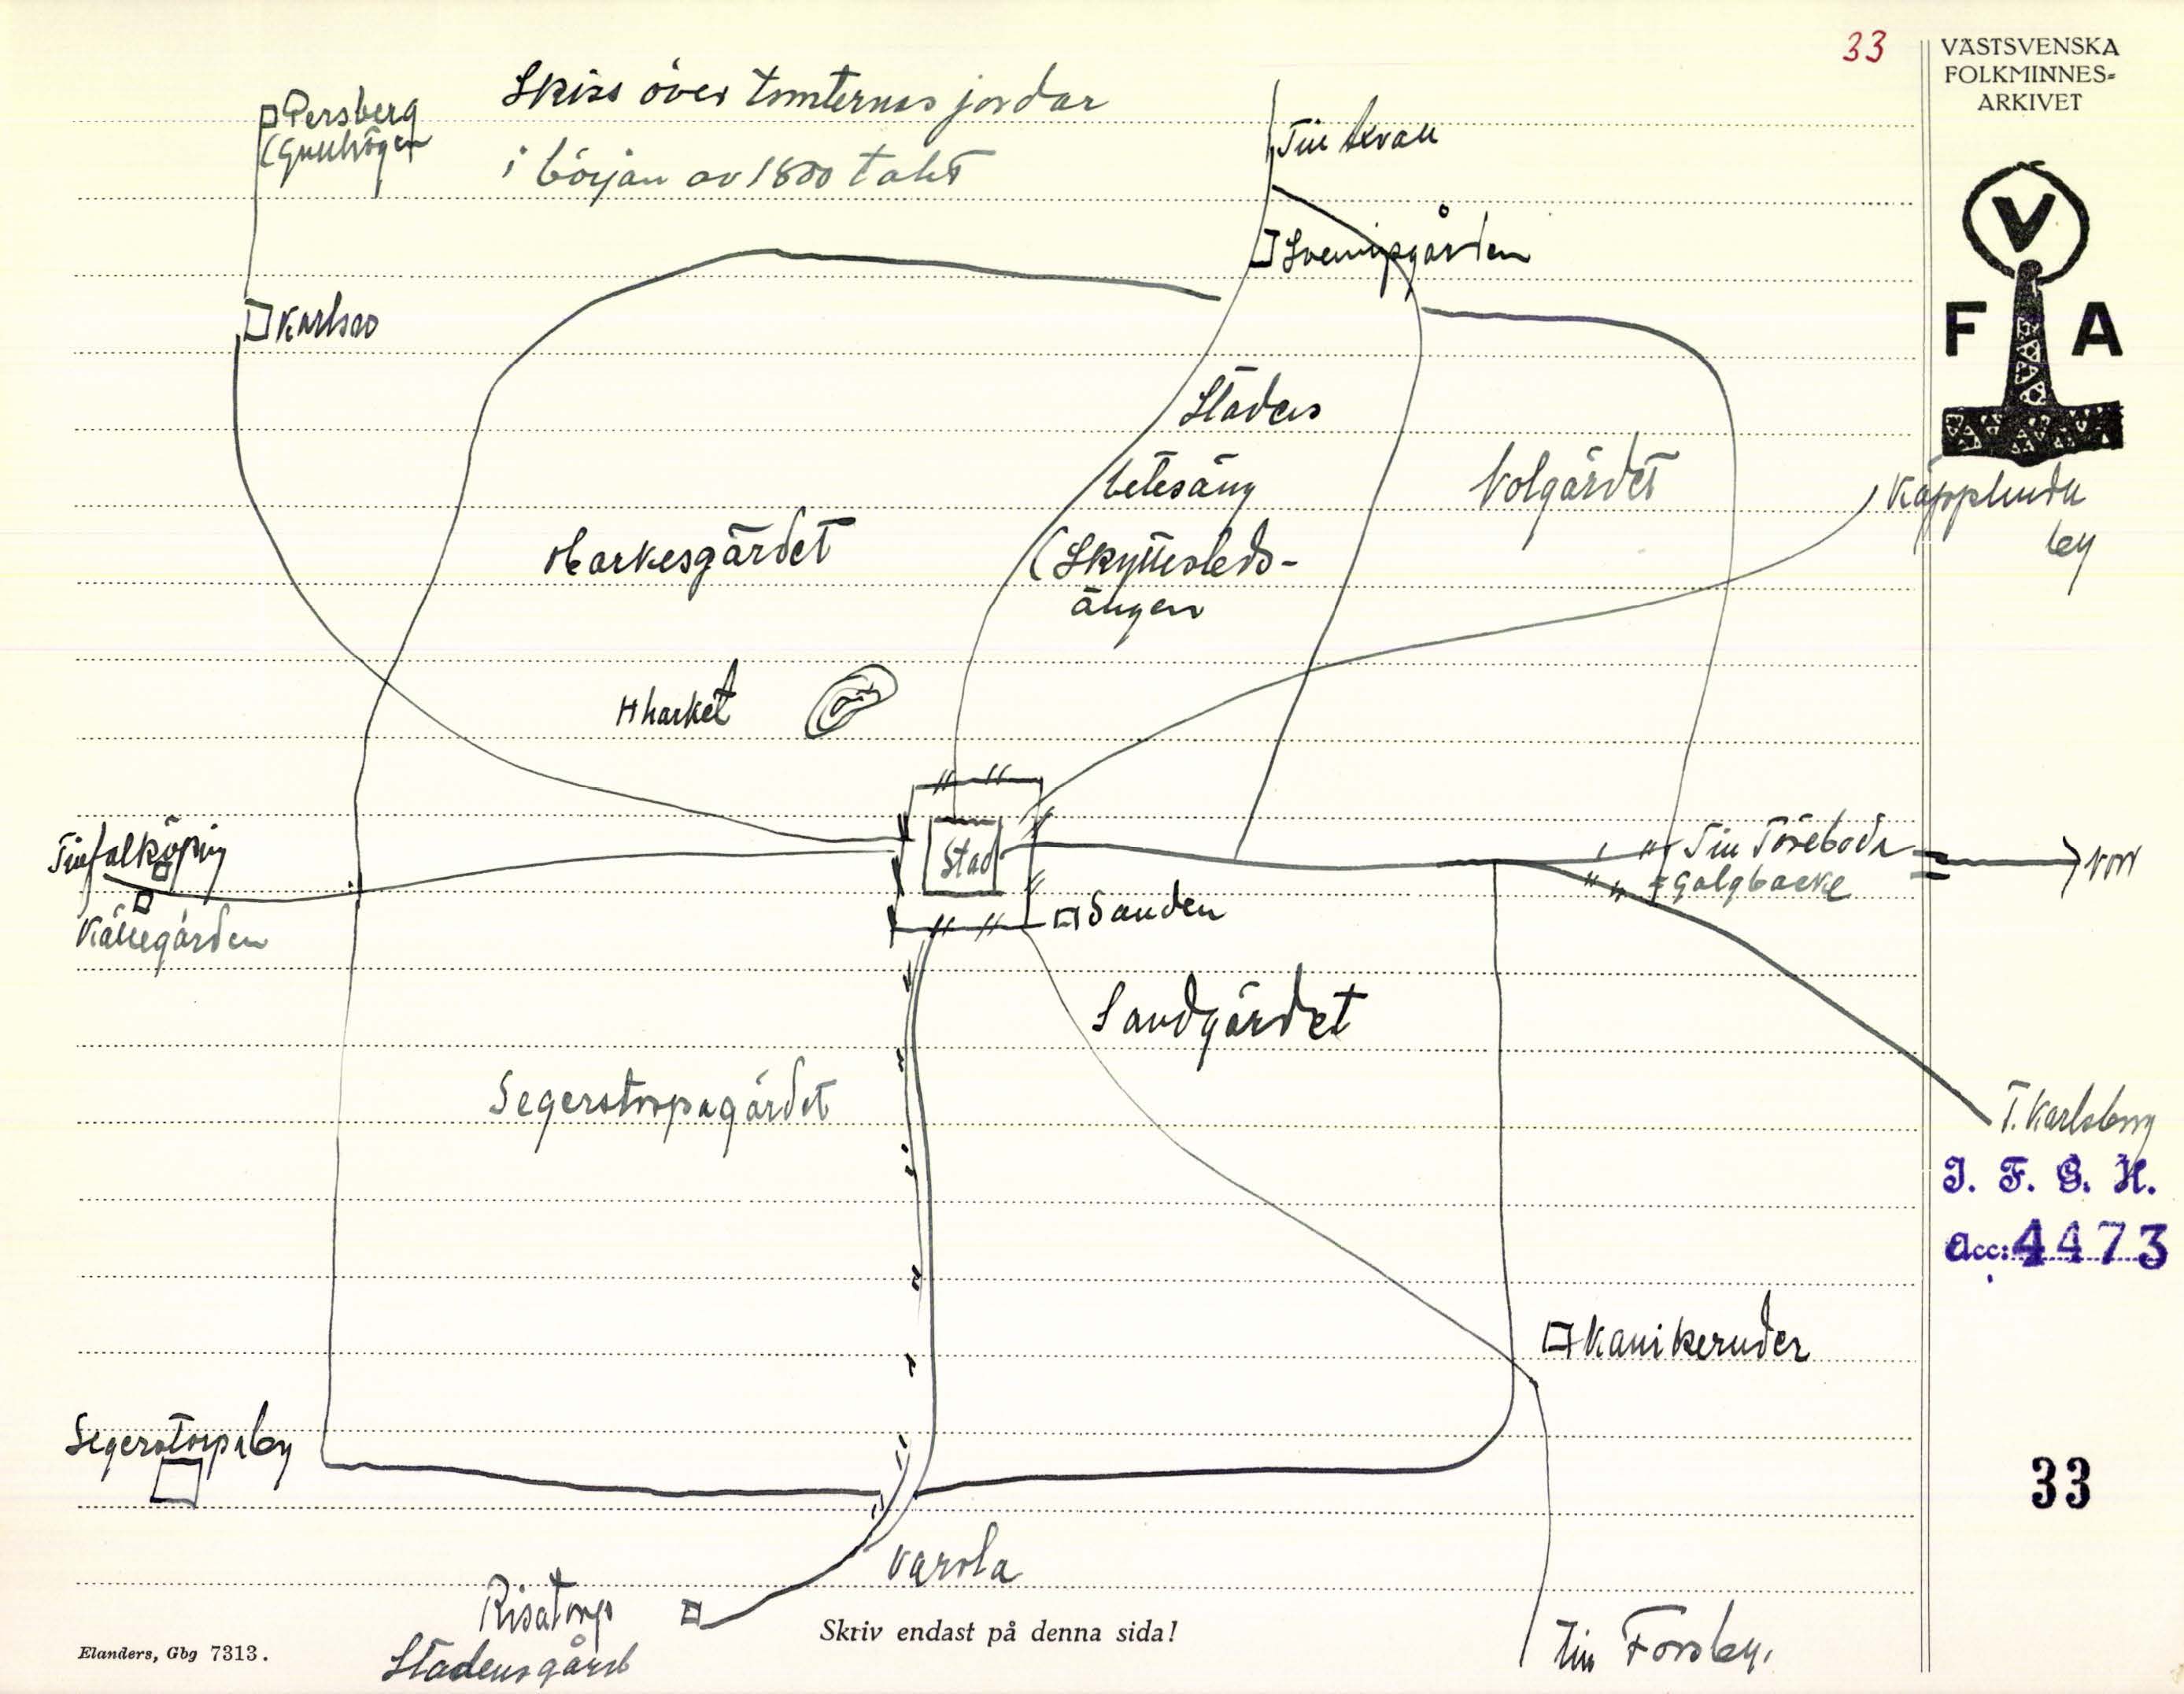 33
VÄSTSVENSKA
FOLKMINNES=
ARKIVET
V
F A
Skiss över tomternas jordar
i början av 1800 talet
Persberg
(Gullhögen
Karlsro
Till Axvall
Svenigsgården
Stadens
betesäng
(Skyttesleds-
ängen
Volgärdet
Käpplunda
by
Harkesgärdet
Harket
Till Falköping
Källegården
Stad
Till Töreboda
= Galgbacke
Norr
Sanden
Sandgärdet
Segerstorpagärdet
T. Karlsborg
I. F. G. H.
Acc: 4473
Kanikerudet
Segerstorpaby
33
Varola
Risatorp
Stadens gård
Till Forsby.
Skriv endast på denna sida!
Elanders, Gbg 7313.